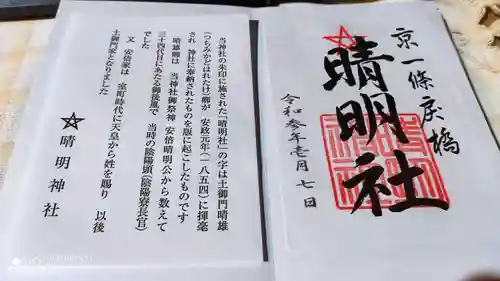 京一條戻橋
晴明社
令和参年壱月七日
当神社の朱印に施された「晴明社」の字は土御門晴雄
(つちみかどはれたけ)卿が 安政元年(一八五四)に揮毫
され 神社に奉納されたものを版に起こしたものです
晴雄卿は 当神社御祭神 安倍晴明公から数えて
三十四代目にあたる御後胤で 当時の陰陽頭(陰陽寮長官)
でした
又 安倍家は 室町時代に天皇から姓を賜り 以後
土御門家となりました
晴明神社